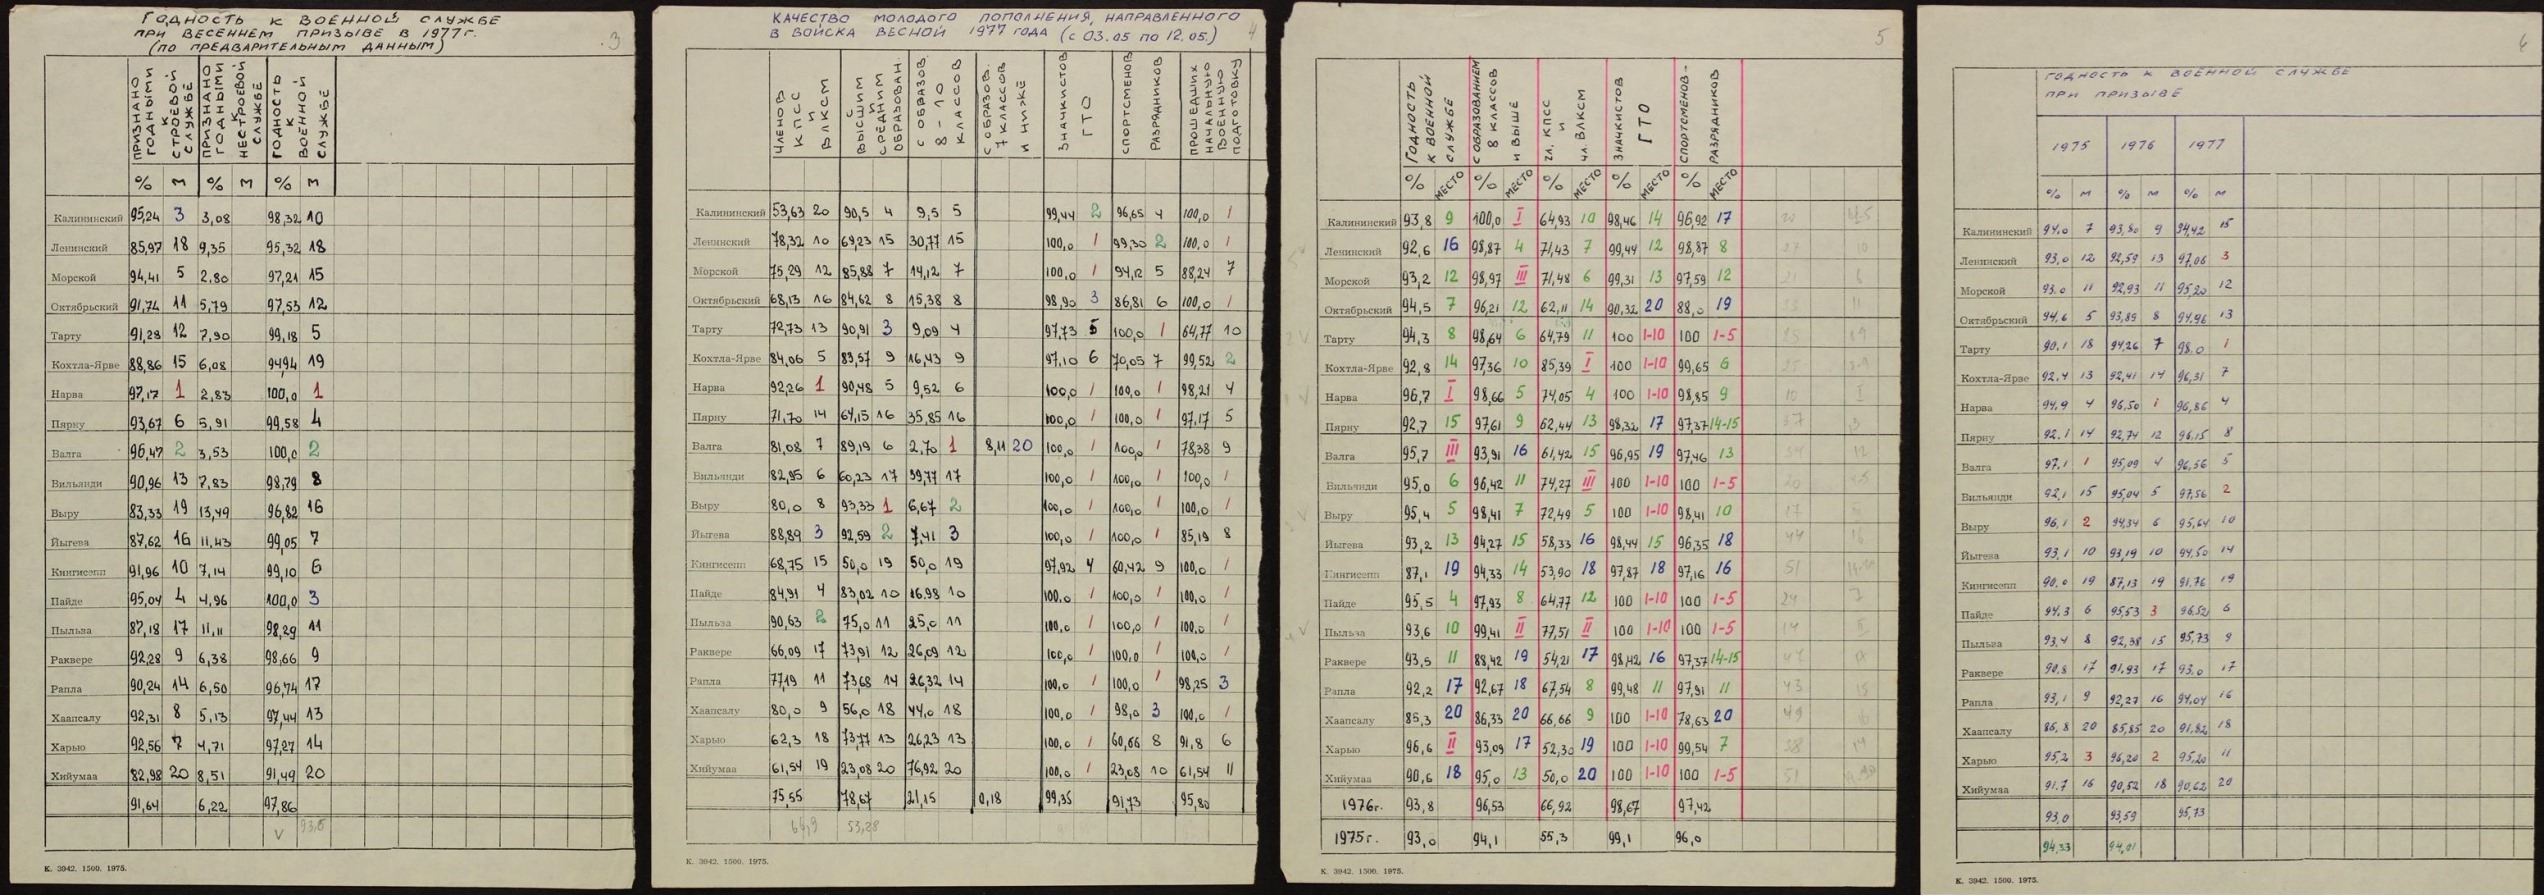 Годность к военной службе
при весеннем призыве в 1977г.
(по предварительным данным)
3
Признано годными к строевой службе | Признано годными к нестроевой службе | Годность к военной службе
% м % м % м
Калининский 95,24 3 3,08 98,32 10
Ленинский 85,97 18 9,35 95,32 18
Морской 94,41 5 2,80 97,21 15
Октябрьский 91,74 11 5,79 97,53 12
Тарту 91,28 12 7,90 99,18 5
Кохтла-Ярве 88,86 15 6,08 94,94 19
Нарва 97,17 1 2,83 100,0 1
Пярну 93,67 6 5,91 99,58 4
Валга 96,47 2 3,53 100,0 2
Вильянди 90,96 13 7,83 98,79 8
Выру 83,33 19 13,49 96,82 16
Йыгева 87,62 16 11,43 99,05 7
Кингисепп 91,96 10 7,14 99,10 6
Пайде 95,04 4 4,96 100,0 3
Пыльва 87,18 17 11,11 98,29 11
Раквере 92,28 9 6,38 98,66 9
Рапла 90,24 14 6,50 96,74 17
Хаапсалу 92,31 8 5,13 97,44 13
Харью 92,56 7 4,71 97,27 14
Хийумаа 82,98 20 8,51 91,49 20
91,64 6,22 97,86
V 93,8
К. 3942. 1500. 1975.
Качество молодого пополнения, направленного
в войска весной 1977 года (с 03.05 по 12.05.)
4
Членов КПСС и ВЛКСМ | с высшим и средним образован. | с образов. 8-10 классов | с образов. 7 классов и ниже | Значкистов ГТО | Спортсменов разрядников | Прошедших начальную военную подготовку
Калининский 53,63 20 90,5 4 9,5 5 99,44 2 96,65 4 100,0 1
Ленинский 78,32 10 69,23 15 30,77 15 100,0 1 99,30 2 100,0 1
Морской 75,29 12 85,88 7 14,12 7 100,0 1 94,12 5 88,24 7
Октябрьский 68,13 16 84,62 8 15,38 8 98,90 3 86,81 6 100,0 1
Тарту 72,73 13 90,91 3 9,09 4 97,73 5 100,0 1 64,77 10
Кохтла-Ярве 84,06 5 83,57 9 16,43 9 97,10 6 70,05 7 99,52 2
Нарва 92,26 1 90,48 5 9,52 6 100,0 1 100,0 1 98,21 4
Пярну 71,70 14 64,15 16 35,85 16 100,0 1 100,0 1 97,17 5
Валга 81,08 7 89,19 6 2,70 1 8,11 20 100,0 1 100,0 1 78,38 9
Вильянди 82,95 6 60,23 17 39,77 17 100,0 1 100,0 1 100,0 1
Выру 80,0 8 93,33 1 6,67 2 100,0 1 100,0 1 100,0 1
Йыгева 88,89 3 92,59 2 7,41 3 100,0 1 100,0 1 85,19 8
Кингисепп 68,75 15 50,0 19 50,0 19 97,92 4 60,42 9 100,0 1
Пайде 84,91 4 83,02 10 16,98 10 100,0 1 100,0 1 100,0 1
Пыльва 90,63 2 75,0 11 25,0 11 100,0 1 100,0 1 100,0 1
Раквере 66,09 17 73,91 12 26,09 12 100,0 1 100,0 1 100,0 1
Рапла 77,19 11 73,68 14 26,32 14 100,0 1 100,0 1 98,25 3
Хаапсалу 80,0 9 56,0 18 44,0 18 100,0 1 98,0 3 100,0 1
Харью 62,3 18 73,77 13 26,23 13 100,0 1 60,66 8 91,8 6
Хийумаа 61,54 19 23,08 20 76,92 20 100,0 1 23,08 10 61,54 11
75,55 78,67 21,15 0,18 99,35 91,73 95,80
66,9 53,28
К. 3942. 1500. 1975.
5
Годность к военной службе | с образованием 8 классов и выше | чл. КПСС и чл. ВЛКСМ | Значкистов ГТО | Спортсменов-разрядников
% место % место % место % место % место
Калининский 93,8 9 100,0 I 64,93 10 98,46 14 96,92 17
Ленинский 92,6 16 98,87 4 71,43 7 99,44 12 98,87 8
Морской 93,2 12 98,97 III 71,48 6 99,31 13 97,59 12
Октябрьский 94,5 7 96,21 12 62,11 14 90,32 20 88,0 19
Тарту 94,3 8 98,64 6 64,79 11 100 1-10 100 1-5
Кохтла-Ярве 92,8 14 97,36 10 85,39 I 100 1-10 99,65 6
Нарва 96,7 I 98,66 5 74,05 4 100 1-10 98,85 9
Пярну 92,7 15 97,61 9 62,44 13 98,32 17 97,37 14-15
Валга 95,7 III 93,91 16 61,42 15 96,95 19 97,46 13
Вильянди 95,0 6 96,42 11 74,27 III 100 1-10 100 1-5
Выру 95,4 5 98,41 7 72,49 5 100 1-10 98,41 10
Йыгева 93,2 13 94,27 15 58,33 16 98,44 15 96,35 18
Кингисепп 87,1 19 94,33 14 53,90 18 97,87 18 97,16 16
Пайде 95,5 4 97,93 8 64,77 12 100 1-10 100 1-5
Пыльва 93,6 10 99,41 II 77,51 II 100 1-10 100 1-5
Раквере 93,5 11 88,42 19 54,21 17 98,42 16 97,37 14-15
Рапла 92,2 17 92,67 18 67,54 8 99,48 11 97,91 11
Хаапсалу 85,3 20 86,33 20 66,66 9 100 1-10 78,63 20
Харью 96,6 II 93,09 17 52,30 19 100 1-10 99,54 7
Хийумаа 90,6 18 95,0 13 50,0 20 100 1-10 100 1-5
1976г. 93,8 96,53 66,92 98,67 97,42
1975г. 93,0 94,1 55,3 99,1 96,0
К. 3942. 1500. 1975.
6
Годность к военной службе
при призыве
1975 1976 1977
% м % м % м
Калининский 94,0 7 93,80 9 94,42 15
Ленинский 93,0 12 92,59 13 97,06 3
Морской 93,0 11 92,93 11 95,20 12
Октябрьский 94,6 5 93,89 8 94,96 13
Тарту 90,1 18 94,26 7 98,0 1
Кохтла-Ярве 92,4 13 92,41 14 96,31 7
Нарва 94,9 4 96,50 1 96,86 4
Пярну 92,1 14 92,74 12 96,15 8
Валга 97,1 1 95,09 4 96,56 5
Вильянди 92,1 15 95,04 5 97,56 2
Выру 96,1 2 94,34 6 95,64 10
Йыгева 93,1 10 93,19 10 94,50 14
Кингисепп 90,0 19 87,13 19 91,76 19
Пайде 94,3 6 95,53 3 96,52 6
Пыльва 93,4 8 92,38 15 95,73 9
Раквере 90,8 17 91,93 17 93,0 17
Рапла 93,1 9 92,27 16 94,04 16
Хаапсалу 86,8 20 85,85 20 91,82 18
Харью 95,2 3 96,20 2 95,20 11
Хийумаа 91,7 16 90,52 18 90,62 20
93,0 93,59 95,73
94,33 94,01
К. 3942. 1500. 1975.